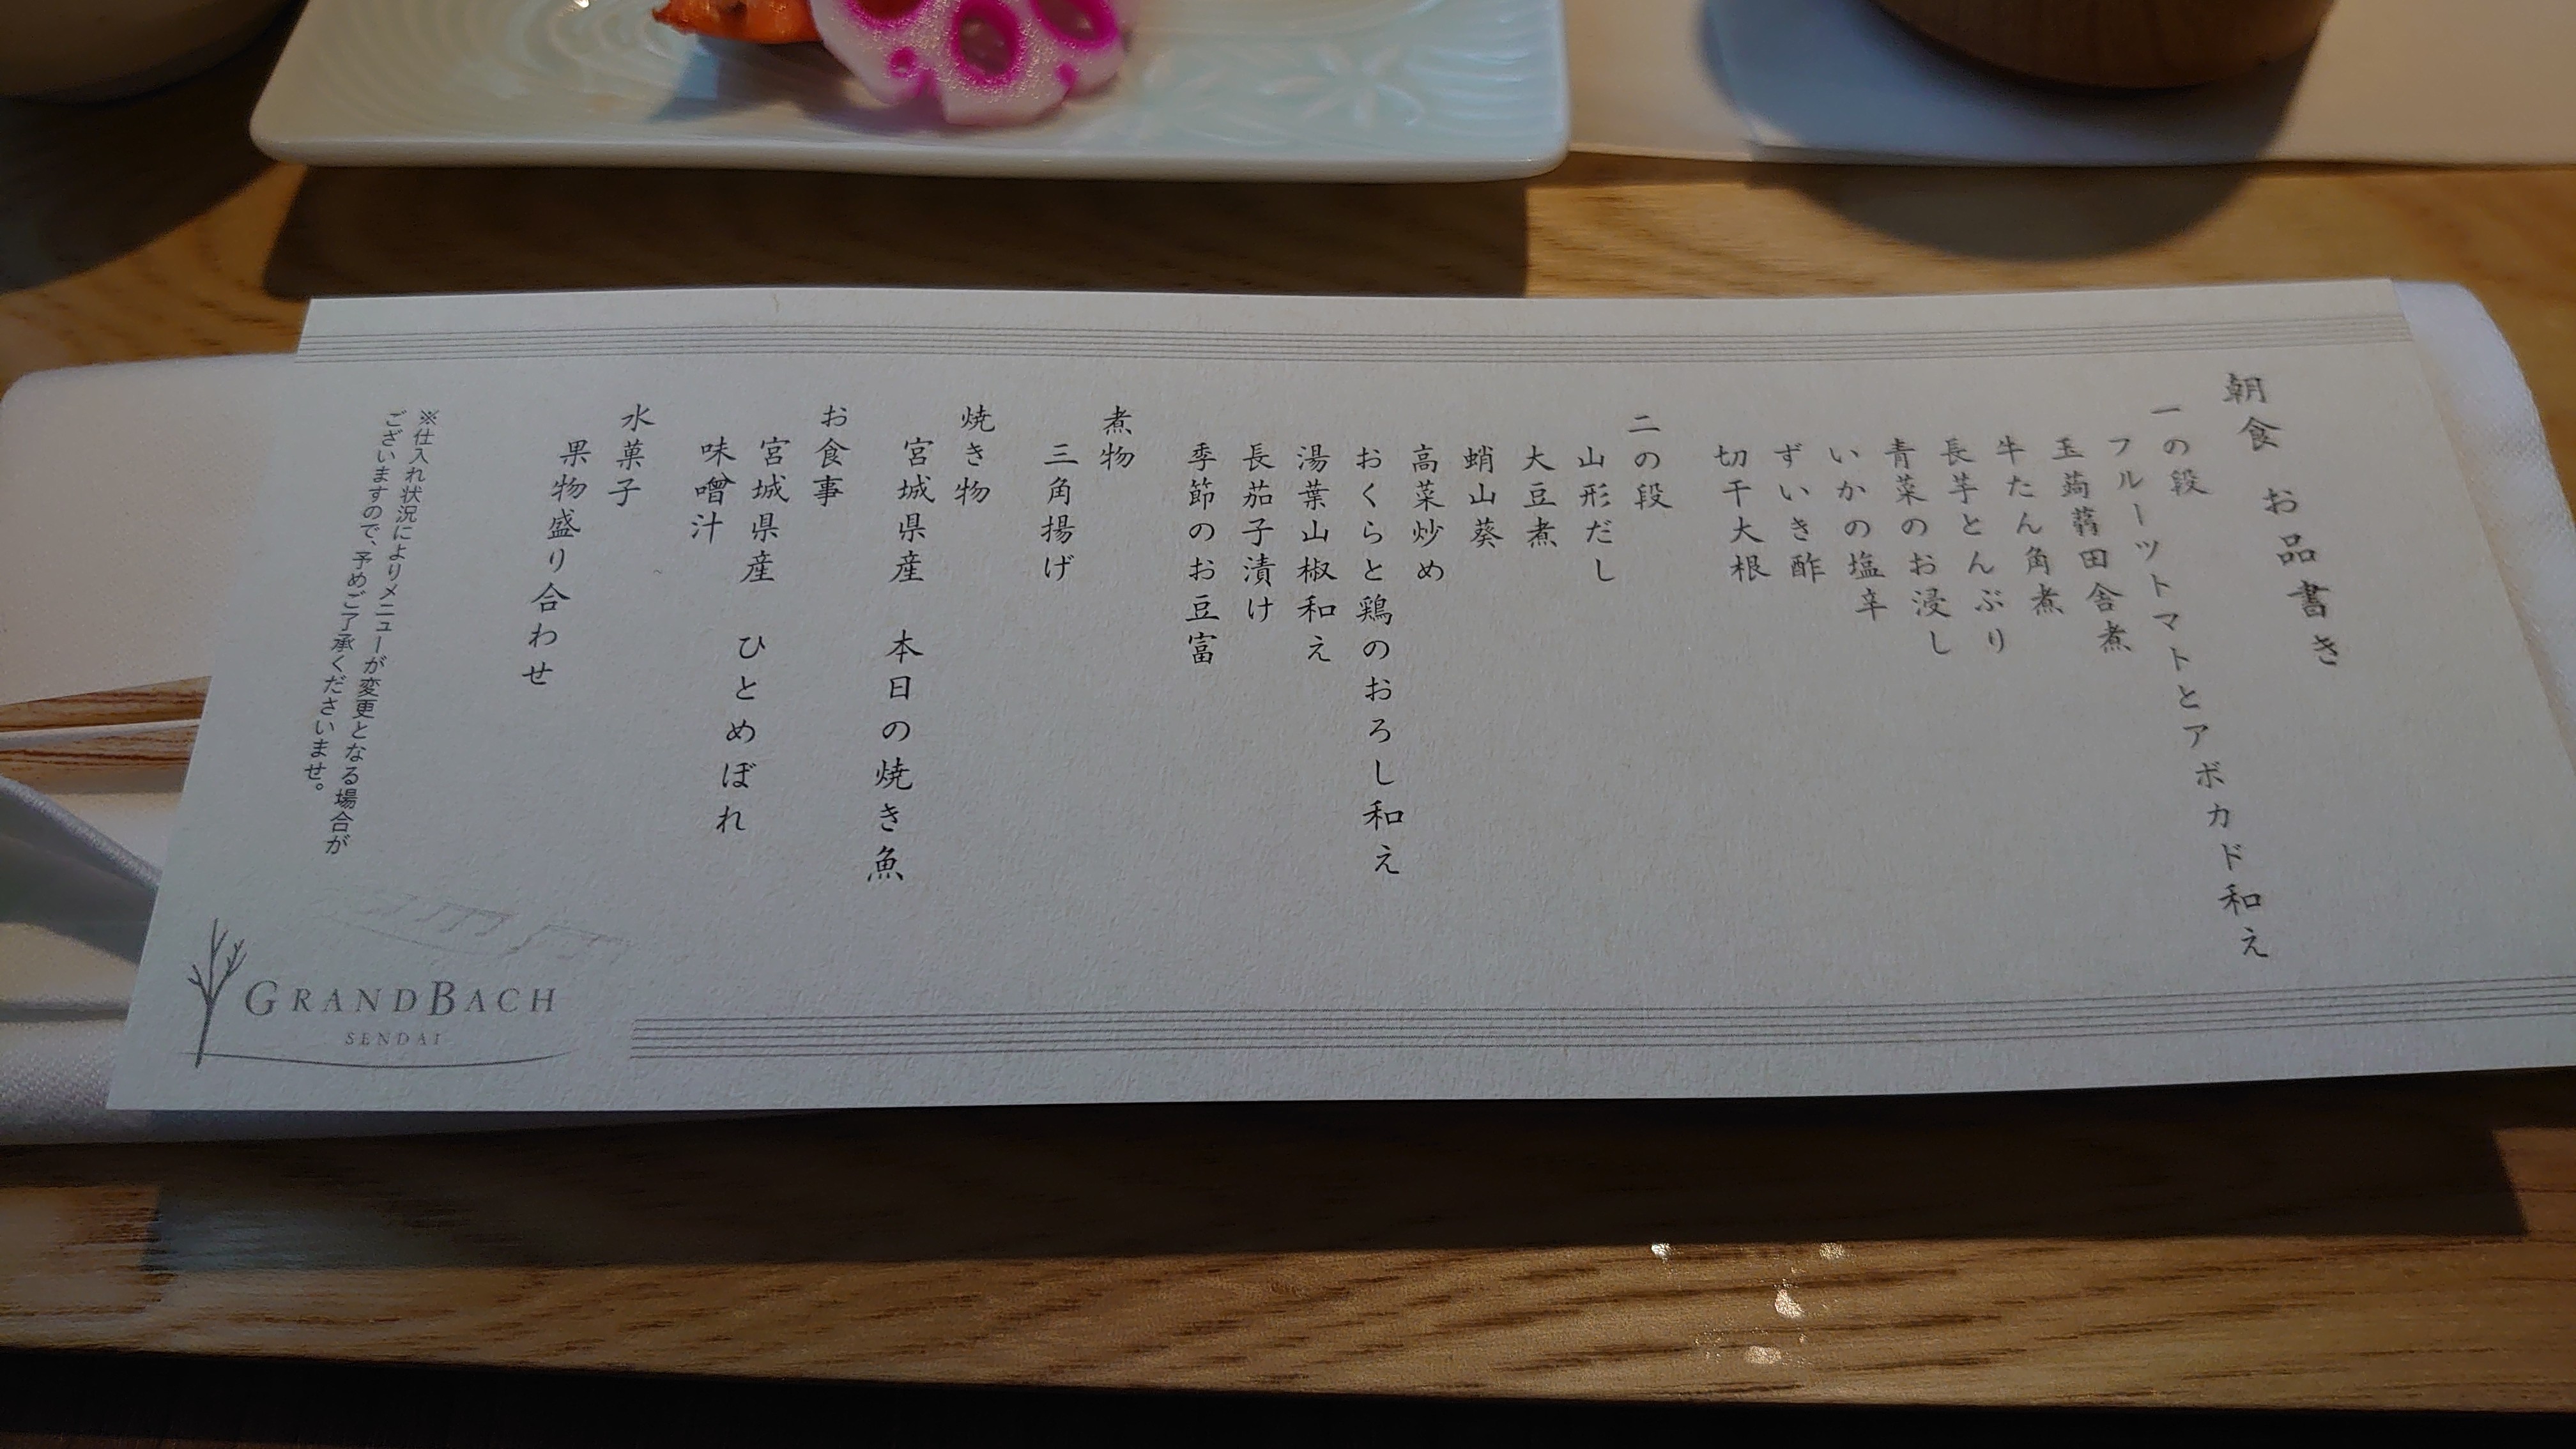 朝食　お品書き
一の段
フルーツトマトとアボカド和え
玉蒟蒻田舎煮
牛たん角煮
長芋とんぶり
青菜のお浸し
いかの塩辛
ずいき酢
切干大根
二の段
山形だし
大豆煮
蛸山葵
高菜炒め
おくらと鶏のおろし和え
湯葉山椒和え
長茄子漬け
季節のお豆富
煮物
三角揚げ
焼き物
宮城県産　本日の焼き魚
お食事
宮城県産　ひとめぼれ
味噌汁
水菓子
果物盛り合わせ
※仕入れ状況によりメニューが変更となる場合が
ございますので、予めご了承くださいませ。
GRANDBACH
SENDAI